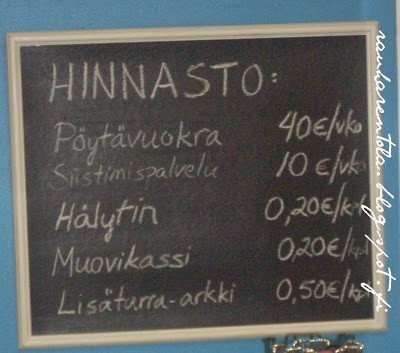 HINNASTO:
Pöytävuokra 40€/vko
Siistimispalvelu 10€/vko
Hälytin 0,20€/kpl
Muovikassi 0,20€/kpl
Lisätarra-arkki 0,50€/kpl
rauharentola.blogspot.fi